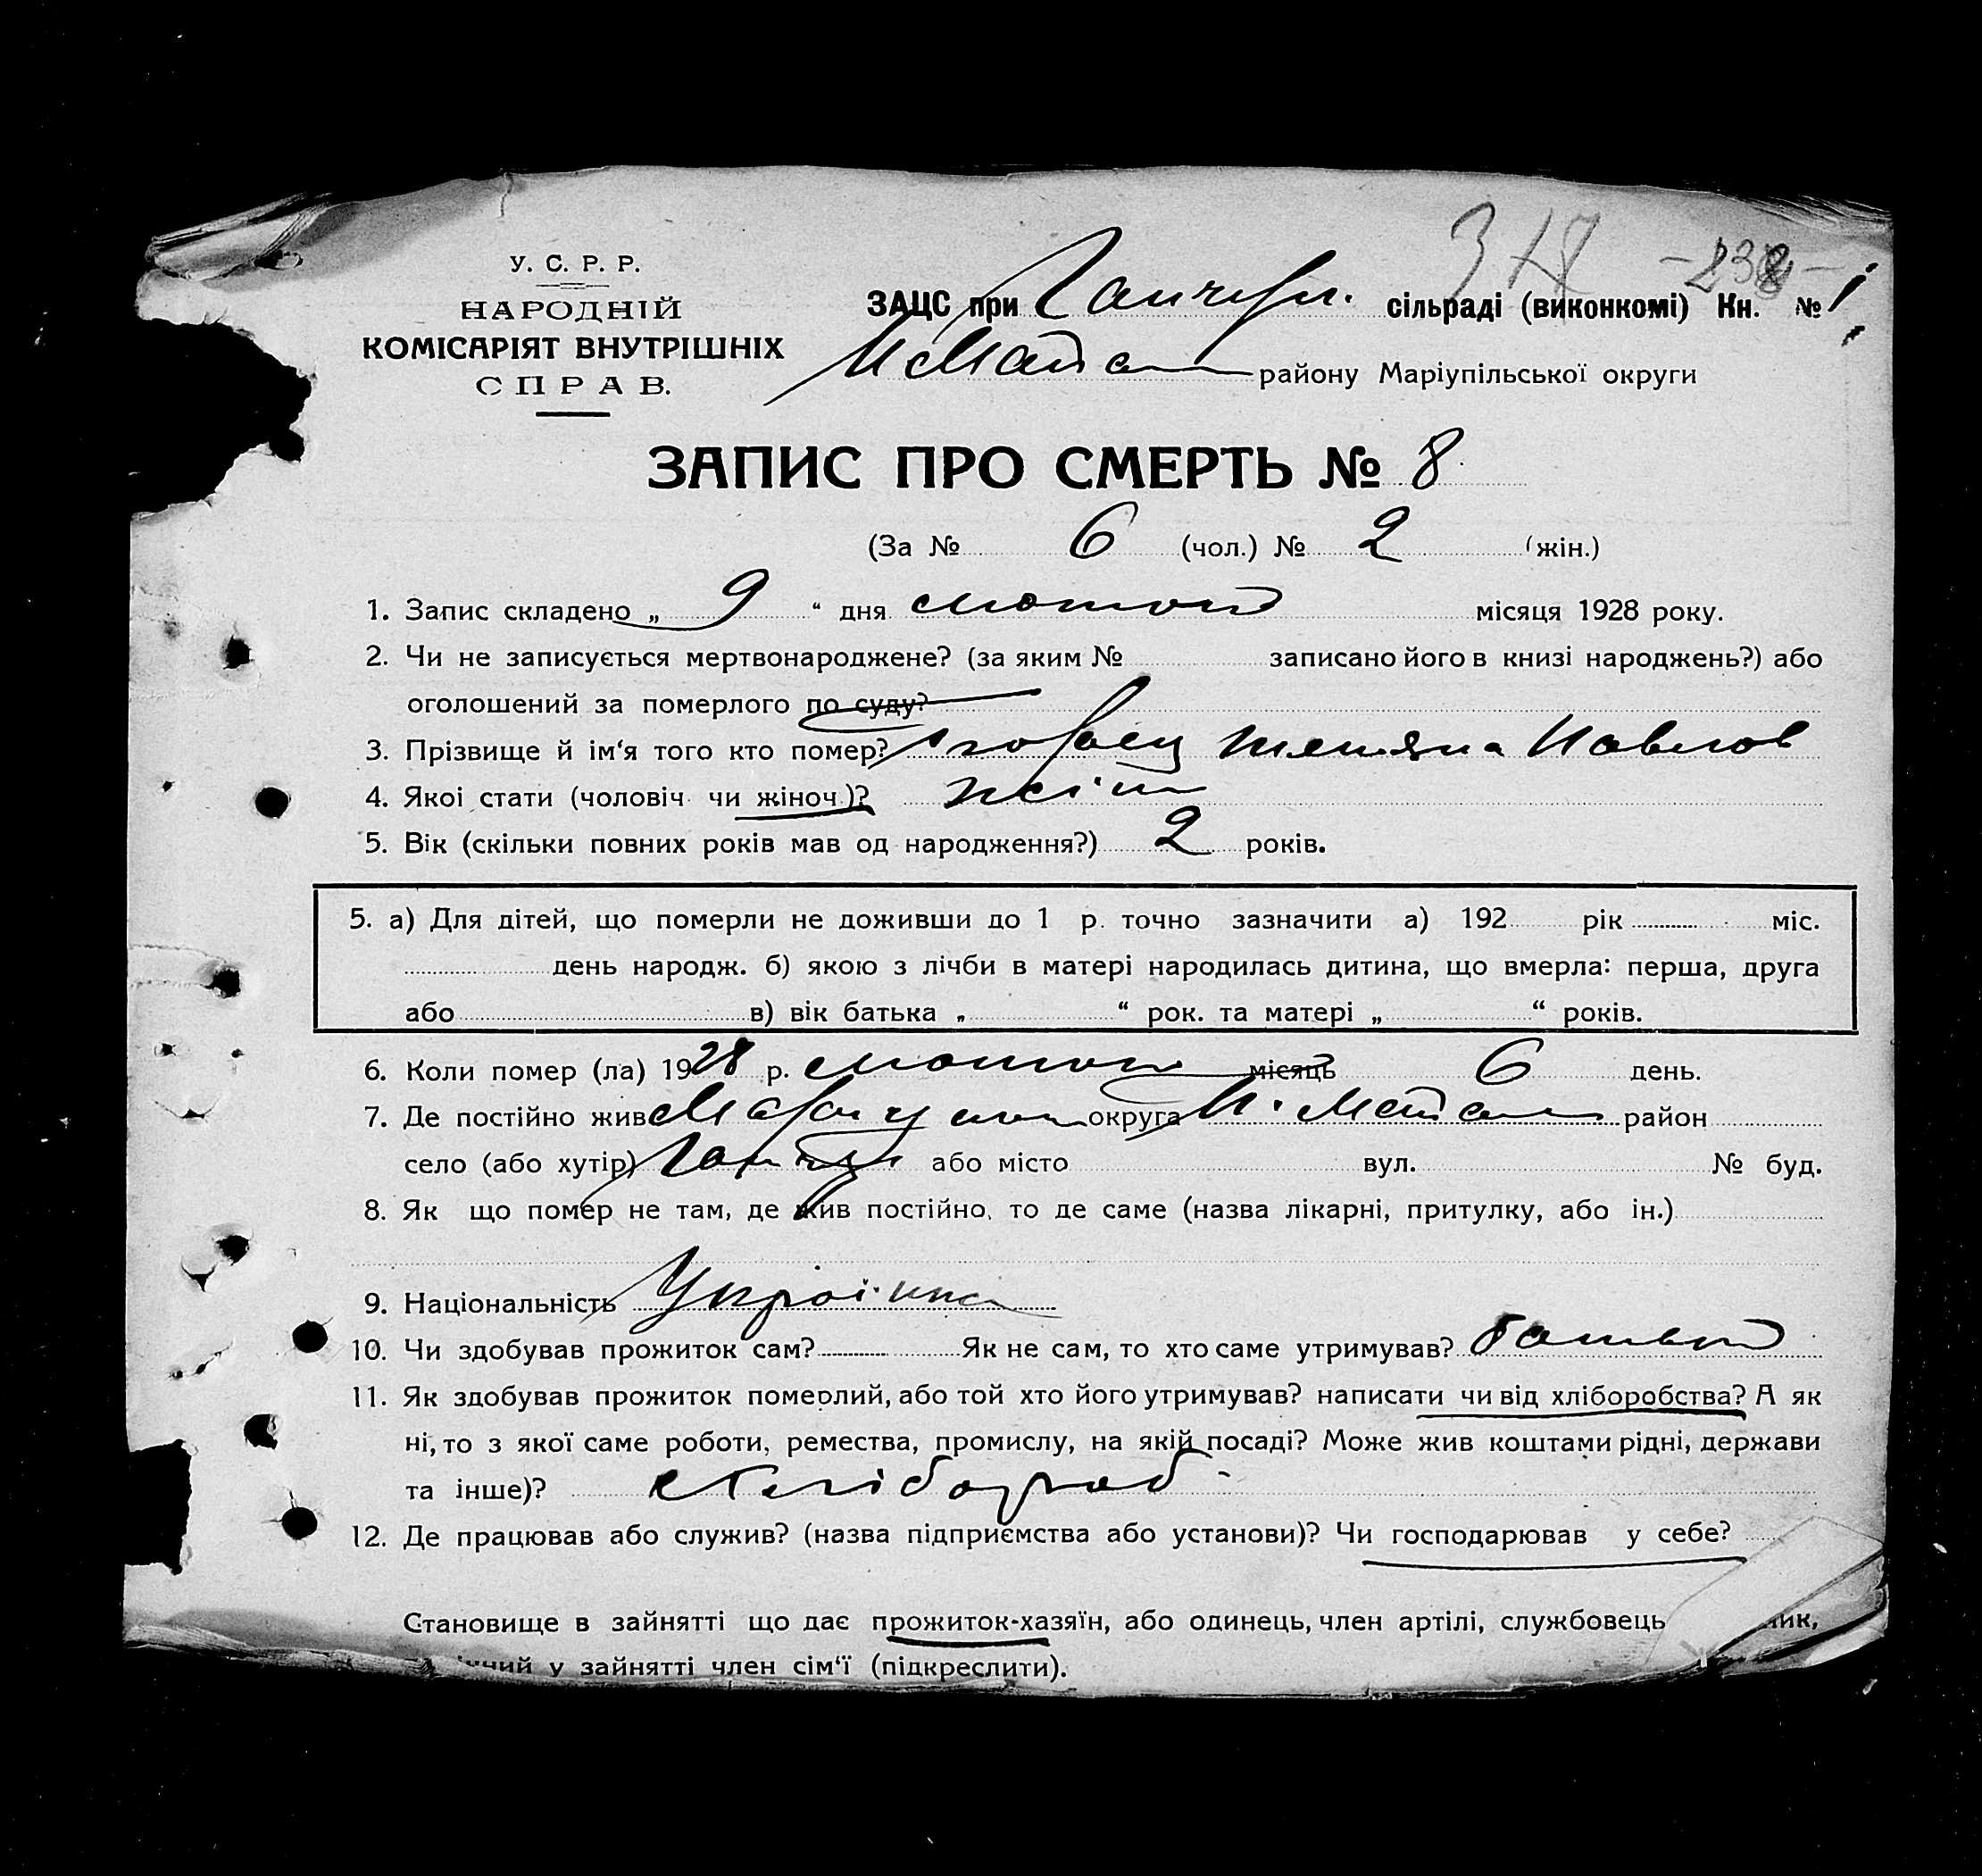 У. С. Р. Р.
НАРОДНІЙ
КОМІСАРІЯТ ВНУТРІШНІХ
СПРАВ.
317 -232-
ЗАЦС при сільраді (виконкомі) Кн. № 1
району Маріупільської округи
ЗАПИС ПРО СМЕРТЬ № 8
(За № 6 (чол.) № 2 (жін.)
1. Запис складено „ 9 “ дня лютого місяця 1928 року.
2. Чи не записується мертвонароджене? (за яким № записано його в книзі народжень?) або
оголошений за померлого по суду?
3. Прізвище й ім‘я того кто помер? Тетяна Павлов
4. Якоі стати (чоловіч чи жіноч.)? жін
5. Вік (скільки повних років мав од народження?) 2 років.
5. а) Для дітей, що померли не доживши до 1 р. точно зазначити а) 192 рік міс.
день народж. б) якою з лічби в матері народилась дитина, що вмерла: перша, друга
або в) вік батька „ “ рок. та матері „ “ років.
6. Коли помер (ла) 1928 р. лютого місяць 6 день.
7. Де постійно жив округа район
село (або хутір) або місто вул. № буд.
8. Як що помер не там, де жив постійно, то де саме (назва лікарні, притулку, або ін.)
9. Національність Українка
10. Чи здобував прожиток сам? Як не сам, то хто саме утримував? батько
11. Як здобував прожиток померлий, або той хто його утримував? написати чи від хліборобства? А як
ні, то з якої саме роботи, ремества, промислу, на якій посаді? Може жив коштами рідні, держави
та інше)? хлібороб
12. Де працював або служив? (назва підприємства або установи)? Чи господарював у себе?
Становище в зайнятті що дає прожиток-хазяїн, або одинець, член артілі, службовець
у зайнятті член сім‘ї (підкреслити).